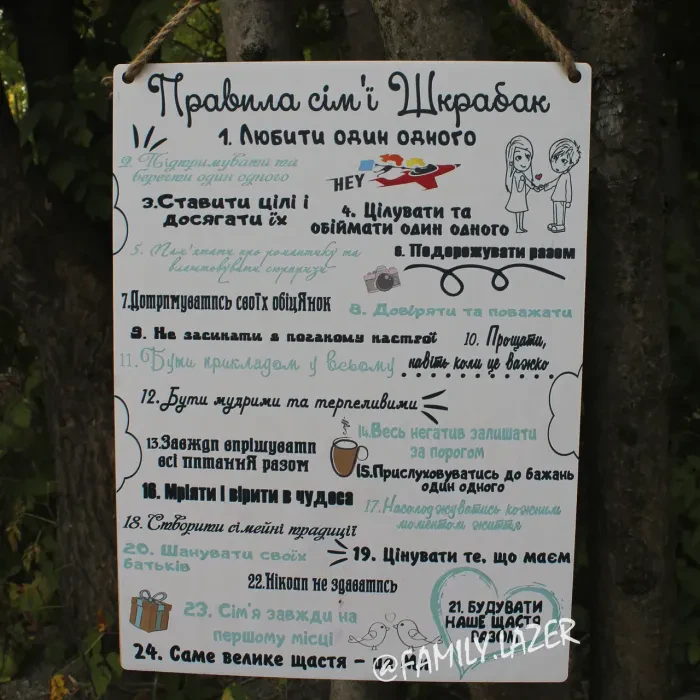 Правила сім'ї Шкрабак
1. Любити один одного
2. Підтримувати та
берегти один одного
HEY
3.Ставити цілі і
досягати їх
4. Цілувати та
обіймати один одного
5. Пам'ятати про романтику та
влаштовувати сюрпризи
6. Подорожувати разом
7.Дотримуватись своїх обіцянок
8. Довіряти та поважати
9. Не засинати в поганому настрої
10. Прощати,
навіть коли це важко
11. Бути прикладом у всьому
12. Бути мудрими та терпеливими
13.Завжди вирішувати
всі питання разом
14.Весь негатив залишати
за порогом
15.Прислуховуватись до бажань
один одного
16. Мріяти і вірити в чудеса
17.Насолоджуватись кожним
моментом життя
18. Створити сімейні традиції
19. Цінувати те, що маєм
20. Шанувати своїх
батьків
21. БУДУВАТИ
НАШЕ ЩАСТЯ
РАЗОМ
22.Ніколи не здаватись
23. Сім'я завжди на
першому місці
24. Саме велике щастя -
@FAMILY.LAZER